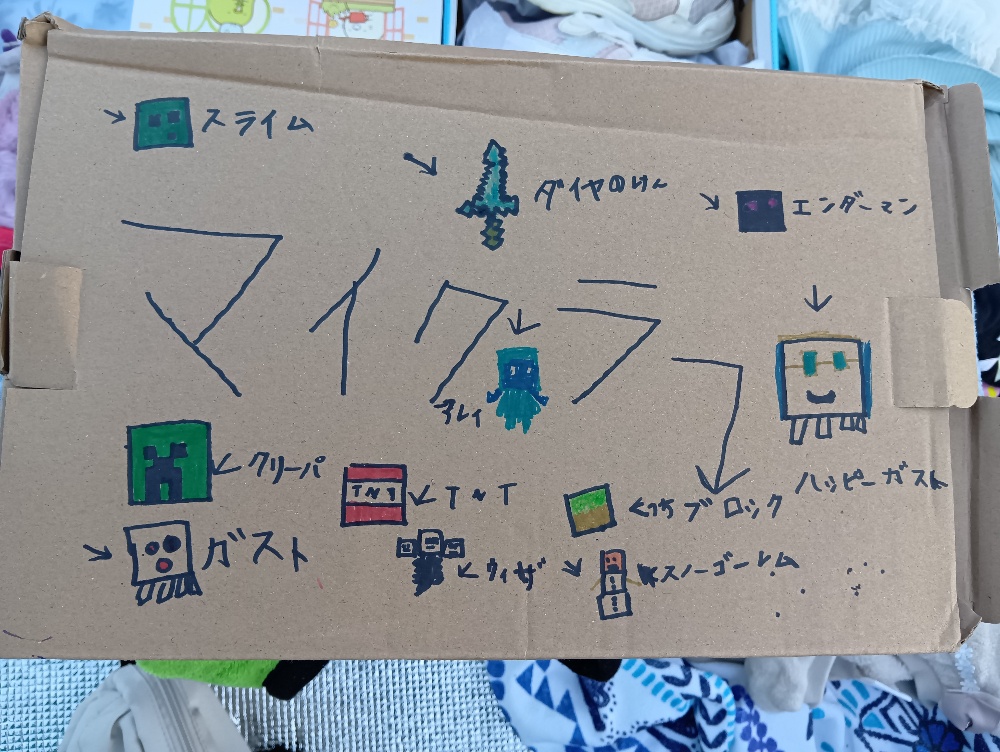 スライム
ダイヤのけん
エンダーマン
マイクラ
アレイ
クリーパ
TNT
TNT
つちブロック
ハッピーガスト
ガスト
ウィザ
スノーゴーレム